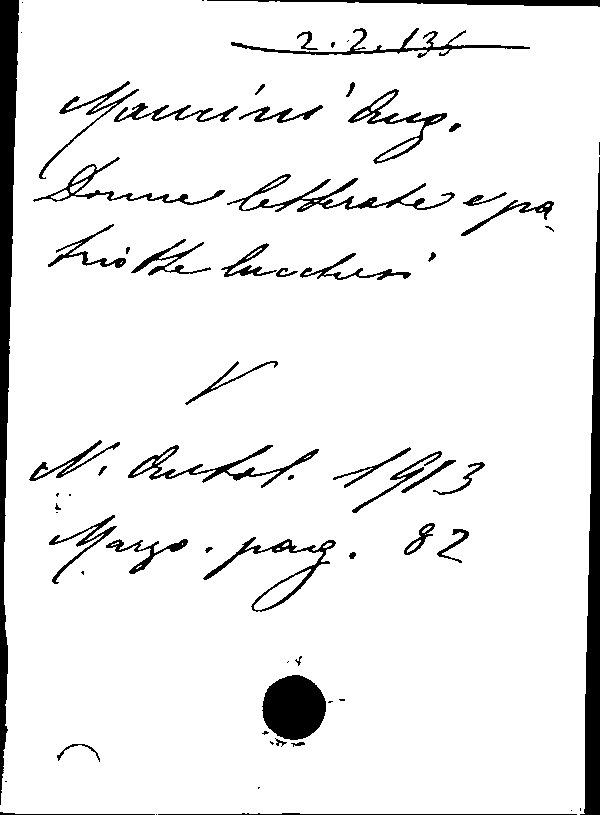 2.2.136
Mancini Aug.
Donne letterate e pa
triotte lucchesi
V
N. Antol. 1913
Marzo. pag. 82